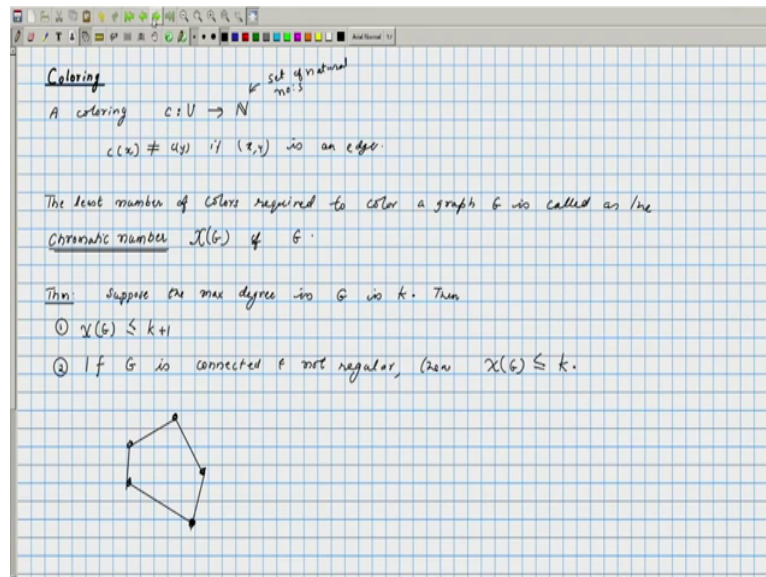 Coloring
set of natural
no:s
A coloring c: V → ℕ
c(x) ≠ c(y) if (x,y) is an edge.
The least number of colors required to color a graph G is called as the
Chromatic number χ(G) of G.
Thm: Suppose the max degree in G is k. Then
① χ(G) ≤ k+1
② If G is connected & not regular, then χ(G) ≤ k.